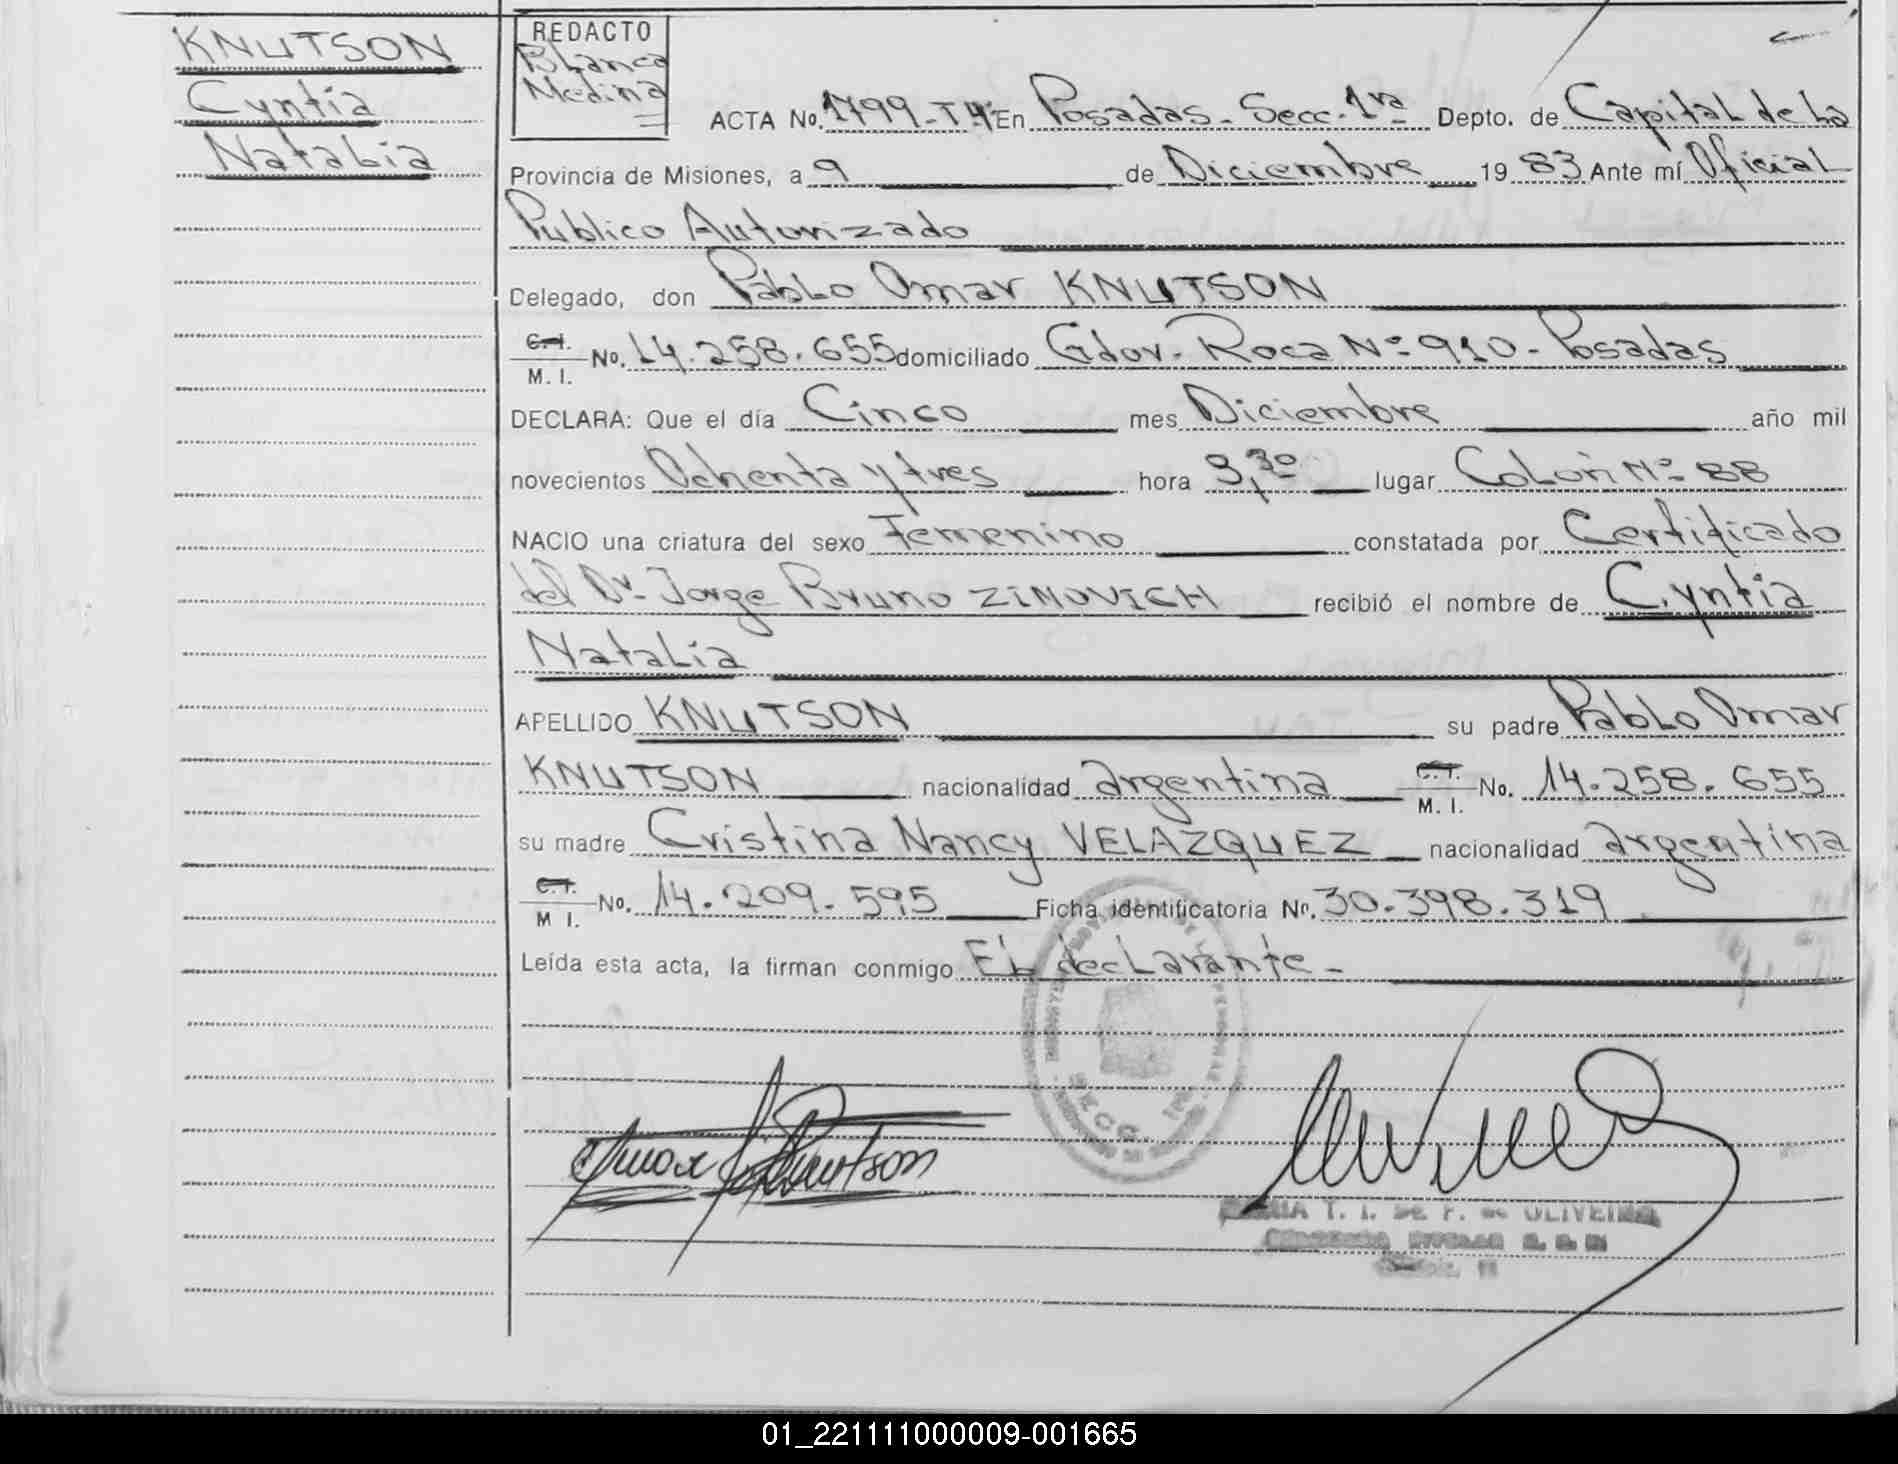 KNUTSON
Cyntia
Natalia
REDACTO
Blanca
Medina
ACTA No. 1799-T4º En Posadas - Secc. 1ra Depto. de Capital de La
Provincia de Misiones, a 9 de Diciembre 19 83 Ante mí Oficial
Publico Autorizado
Delegado, don Pablo Omar KNUTSON
C.I.
M. I. No. 14.258.655 domiciliado Gdor. Roca Nº 910 - Posadas
DECLARA: Que el día Cinco mes Diciembre año mil
novecientos Ochenta y tres hora 9,30 lugar Colón Nº 88
NACIO una criatura del sexo Femenino constatada por Certificado
del Dr. Jorge Bruno ZINOVICH recibió el nombre de Cyntia
Natalia
APELLIDO KNUTSON su padre Pablo Omar
KNUTSON nacionalidad argentina C.I.
M. I. No. 14.258.655
su madre Cristina Nancy VELAZQUEZ nacionalidad argentina
C.I.
M I. No. 14.209.595 Ficha identificatoria No. 30.398.319
Leída esta acta, la firman conmigo El declarante -
T. I. DE F. de OLIVEIRA
01_221111000009-001665